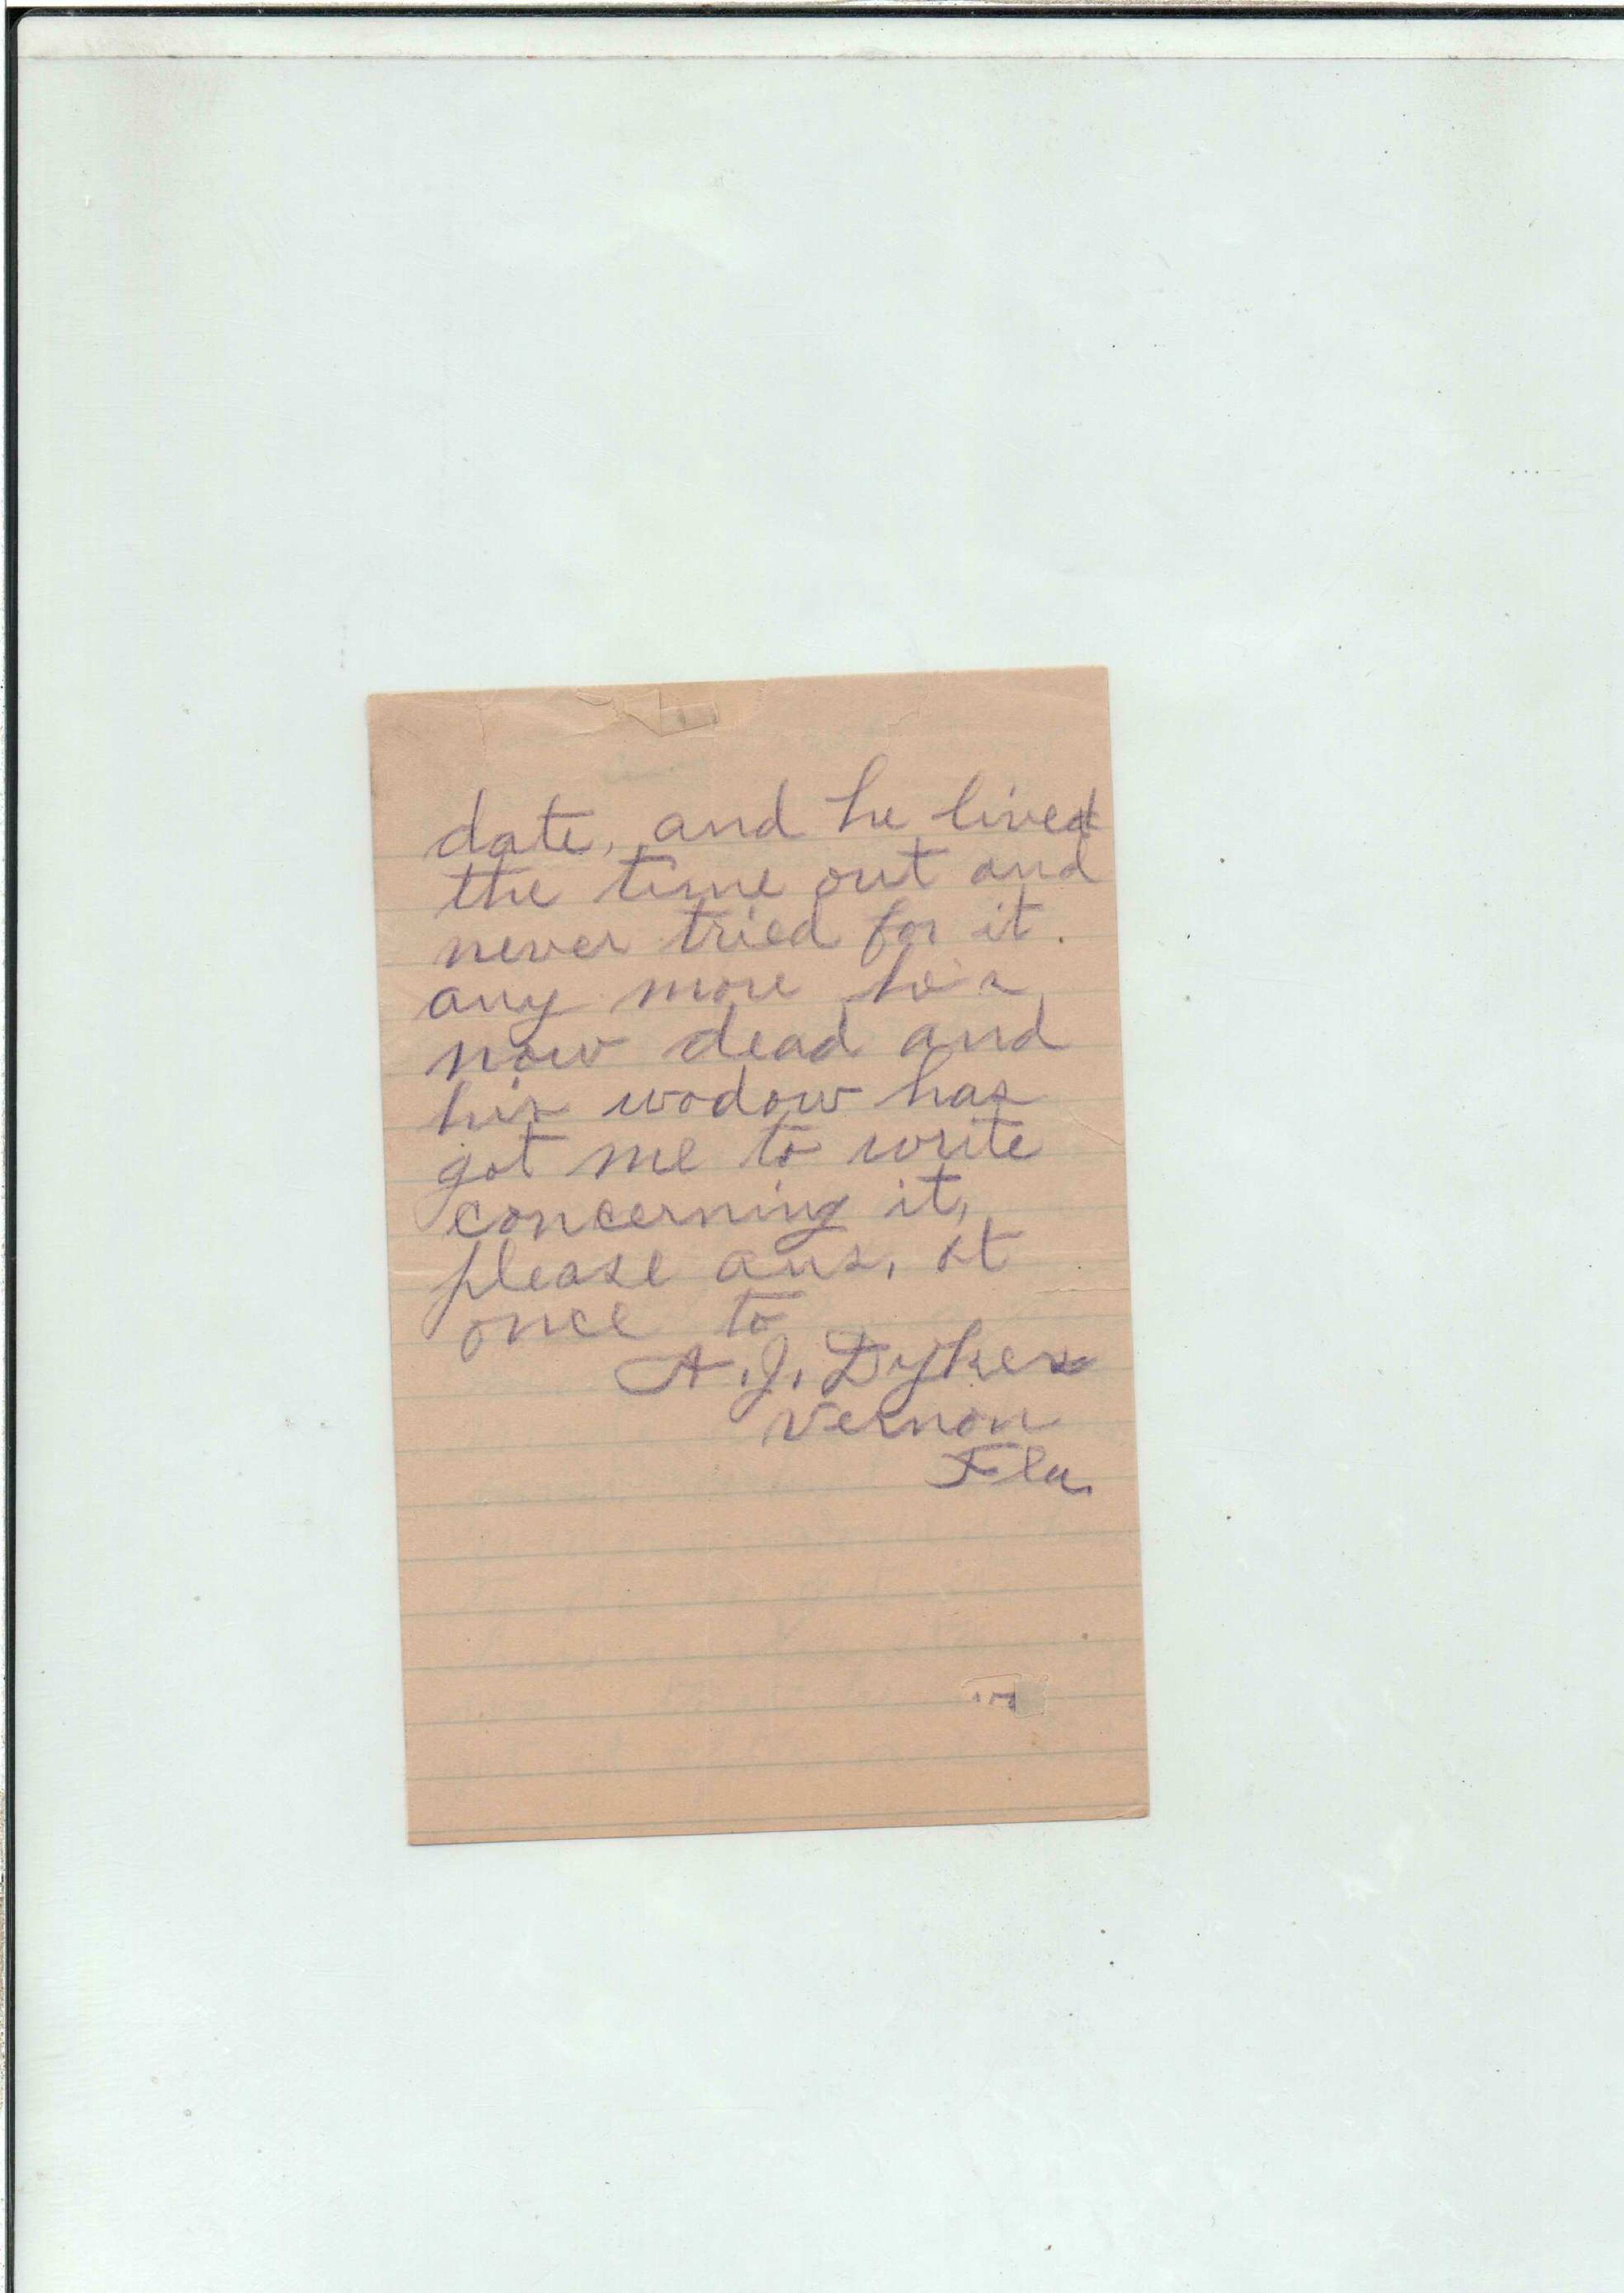 date, and he lived
the time out and
never tried for it.
any more he's
now dead and
his wodow has
got me to write
concerning it,
please ans, at
once to
A.J. Dykes
Vernon
Fla.